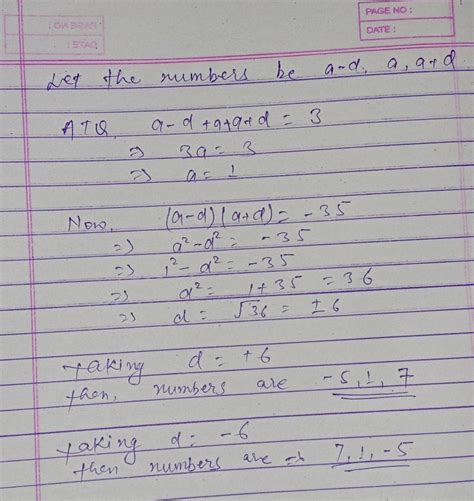 PAGE NO :
DATE :
Let the numbers be a-d, a, a+d
ATQ, a-d+a+a+d = 3
⇒ 3a = 3
⇒ a = 1
Now, (a-d)(a+d) = -35
⇒ a²-d² = -35
⇒ 1²-d² = -35
⇒ d² = 1+35 = 36
⇒ d = √36 = ±6
taking d = +6
then, numbers are -5, 1, 7
taking d = -6
then numbers are ⇒ 7, 1, -5